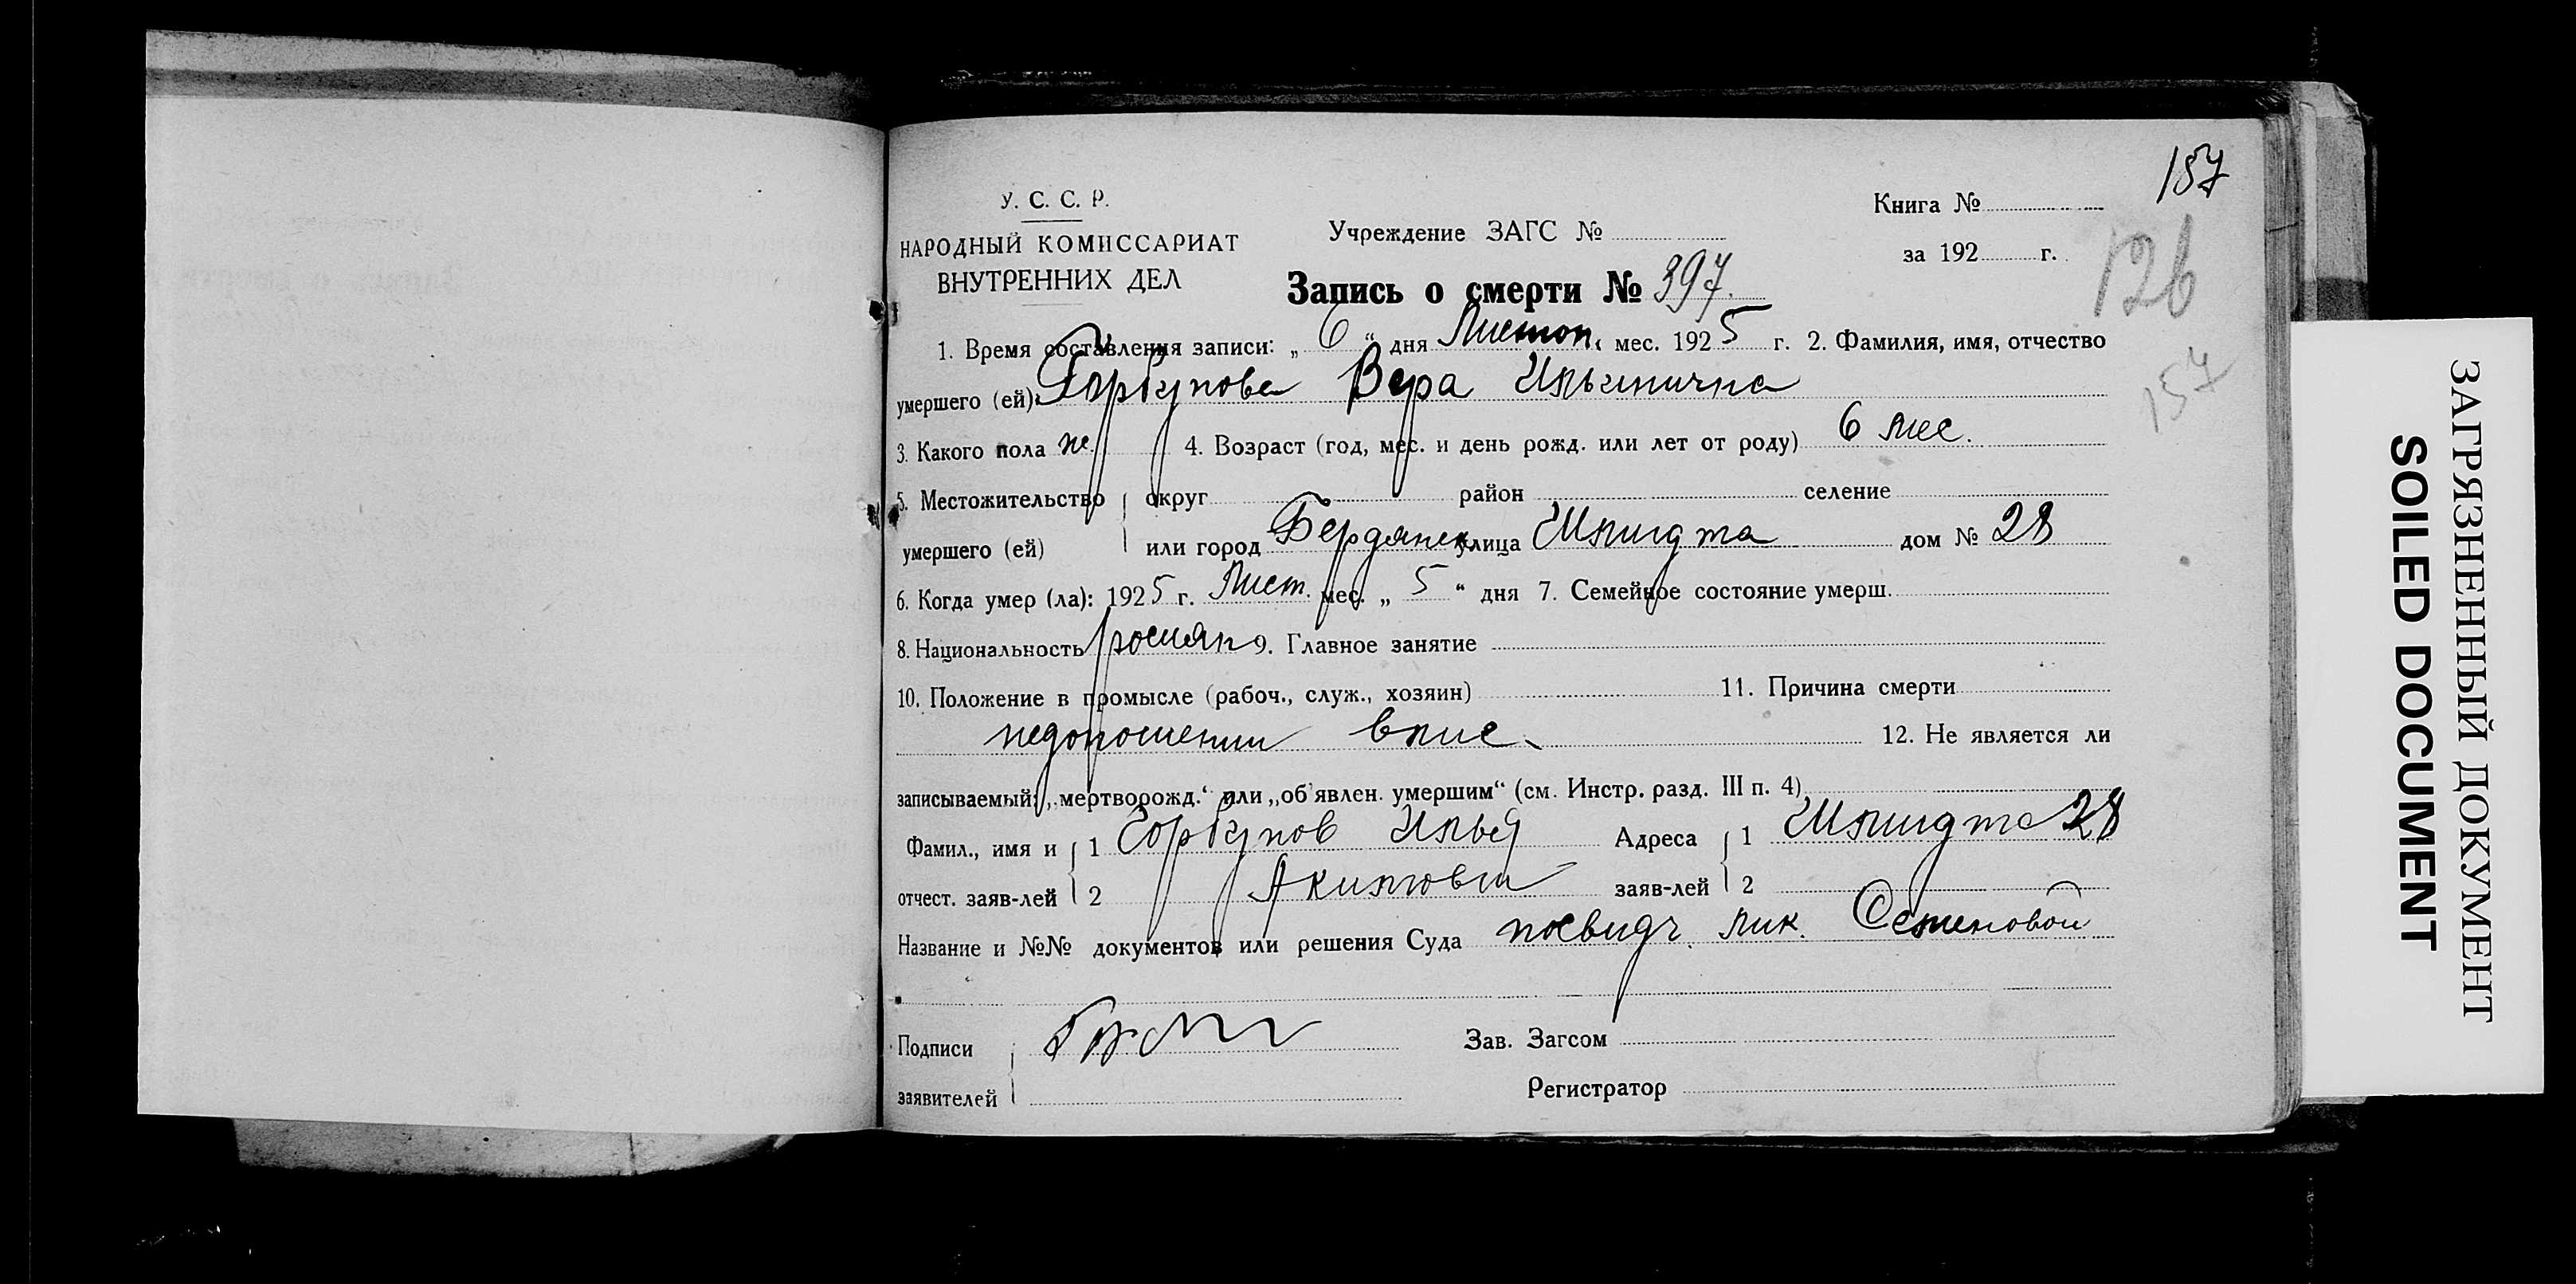 187
У. С. С. Р.
Книга №
Учреждение ЗАГС №
НАРОДНЫЙ КОМИССАРИАТ
ВНУТРЕННИХ ДЕЛ
за 192 г.
126
Запись о смерти № 397.
1. Время составления записи: „ 6 “ дня Листоп. мес. 1925 г. 2. Фамилия, имя, отчество
умершего (ей): Горбунова Вера Ильинична
157
3. Какого пола ж. 4. Возраст (год, мес. и день рожд. или лет от роду) 6 мес.
5. Местожительство округ район селение
умершего (ей) или город Бердянск улица Шмидта дом № 28
6. Когда умер (ла): 1925 г. Лист. мес. „ 5 “ дня 7. Семейное состояние умерш.
8. Национальность росиян 9. Главное занятие
10. Положение в промысле (рабоч., служ., хозяин) 11. Причина смерти
12. Не является ли
записываемый: „мертворожд.“ или „об'явлен. умершим“ (см. Инстр. разд. III п. 4)
Фамил., имя и 1 Горбунов Илья Адреса 1 Шмидта 28
отчест. заяв-лей 2 Акимович заяв-лей 2
Название и №№ документов или решения Суда посвидч. лик. Семеновой
Подписи Зав. Загсом
заявителей Регистратор
ЗАГРЯЗНЕННЫЙ ДОКУМЕНТ
SOILED DOCUMENT